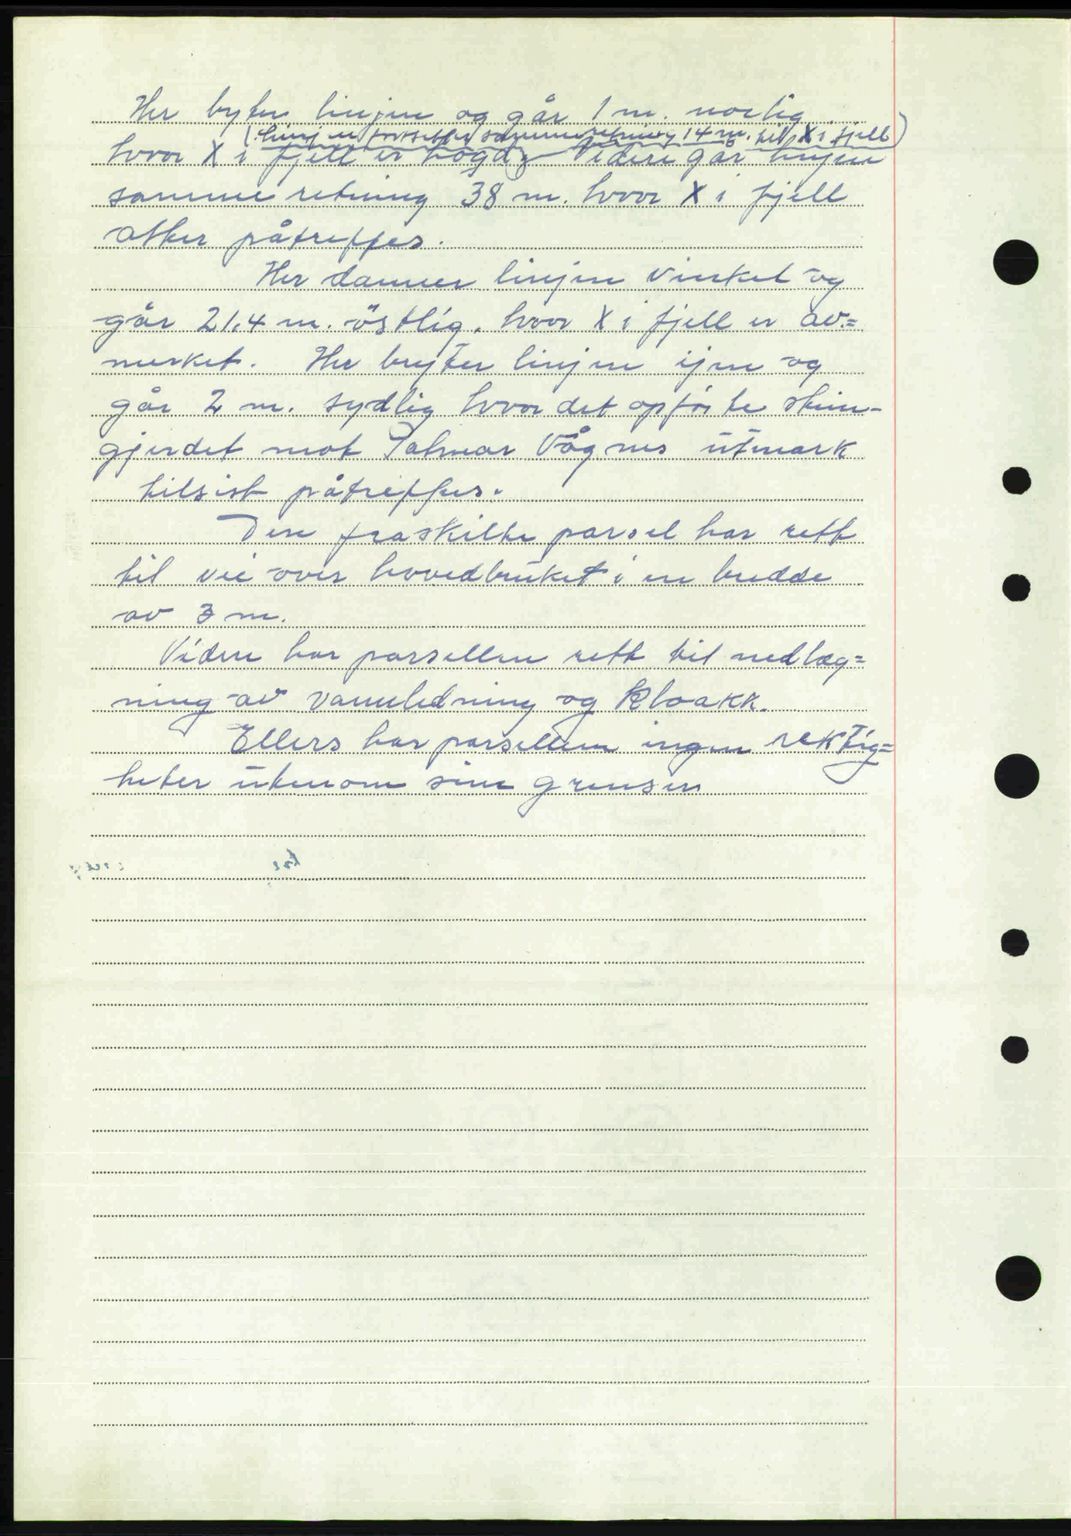 Her byter linjen og går 1 m. norlig
(Linjen fortsetter samme retning 14 m. til X i fjell)
hvor X i fjell er högd Videre går linjen
samme retning 38 m. hvor X i fjell
atter påtreffes.
Her danner linjen vinkel og
går 21,4 m. östlig, hvor X i fjell er av=
merket. Her bryter linjen ijen og
går 2 m. sydlig hvor det opförte skin-
gjerdet mot Palmar Vågnes utmark
tilsist påtreffes.
Den fraskilte parsel har rett
til vei over hovedbruket i en bredde
av 3 m.
Videre har parsellen rett til nedlæg=
ning av vannledning og kloakk.
Ellers har parsellen ingen rektig=
heter utenom sine grenser